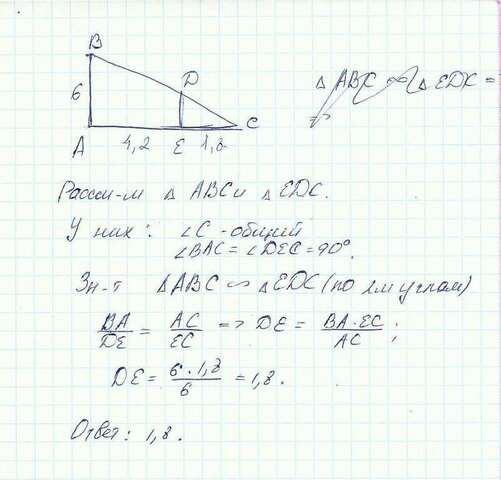 B
D
6
A 4,2 E 1,8 C
△ABC ∾ △EDC =
Рассм-м △ ABC и △ EDC.
У них: ∠C - общий
∠BAC = ∠DEC = 90°.
Зн-т △ABC ∾ △EDC (по 2м углам)
BA/DE = AC/EC => DE = BA·EC/AC ;
DE = 6·1,8/6 = 1,8.
Ответ: 1,8.